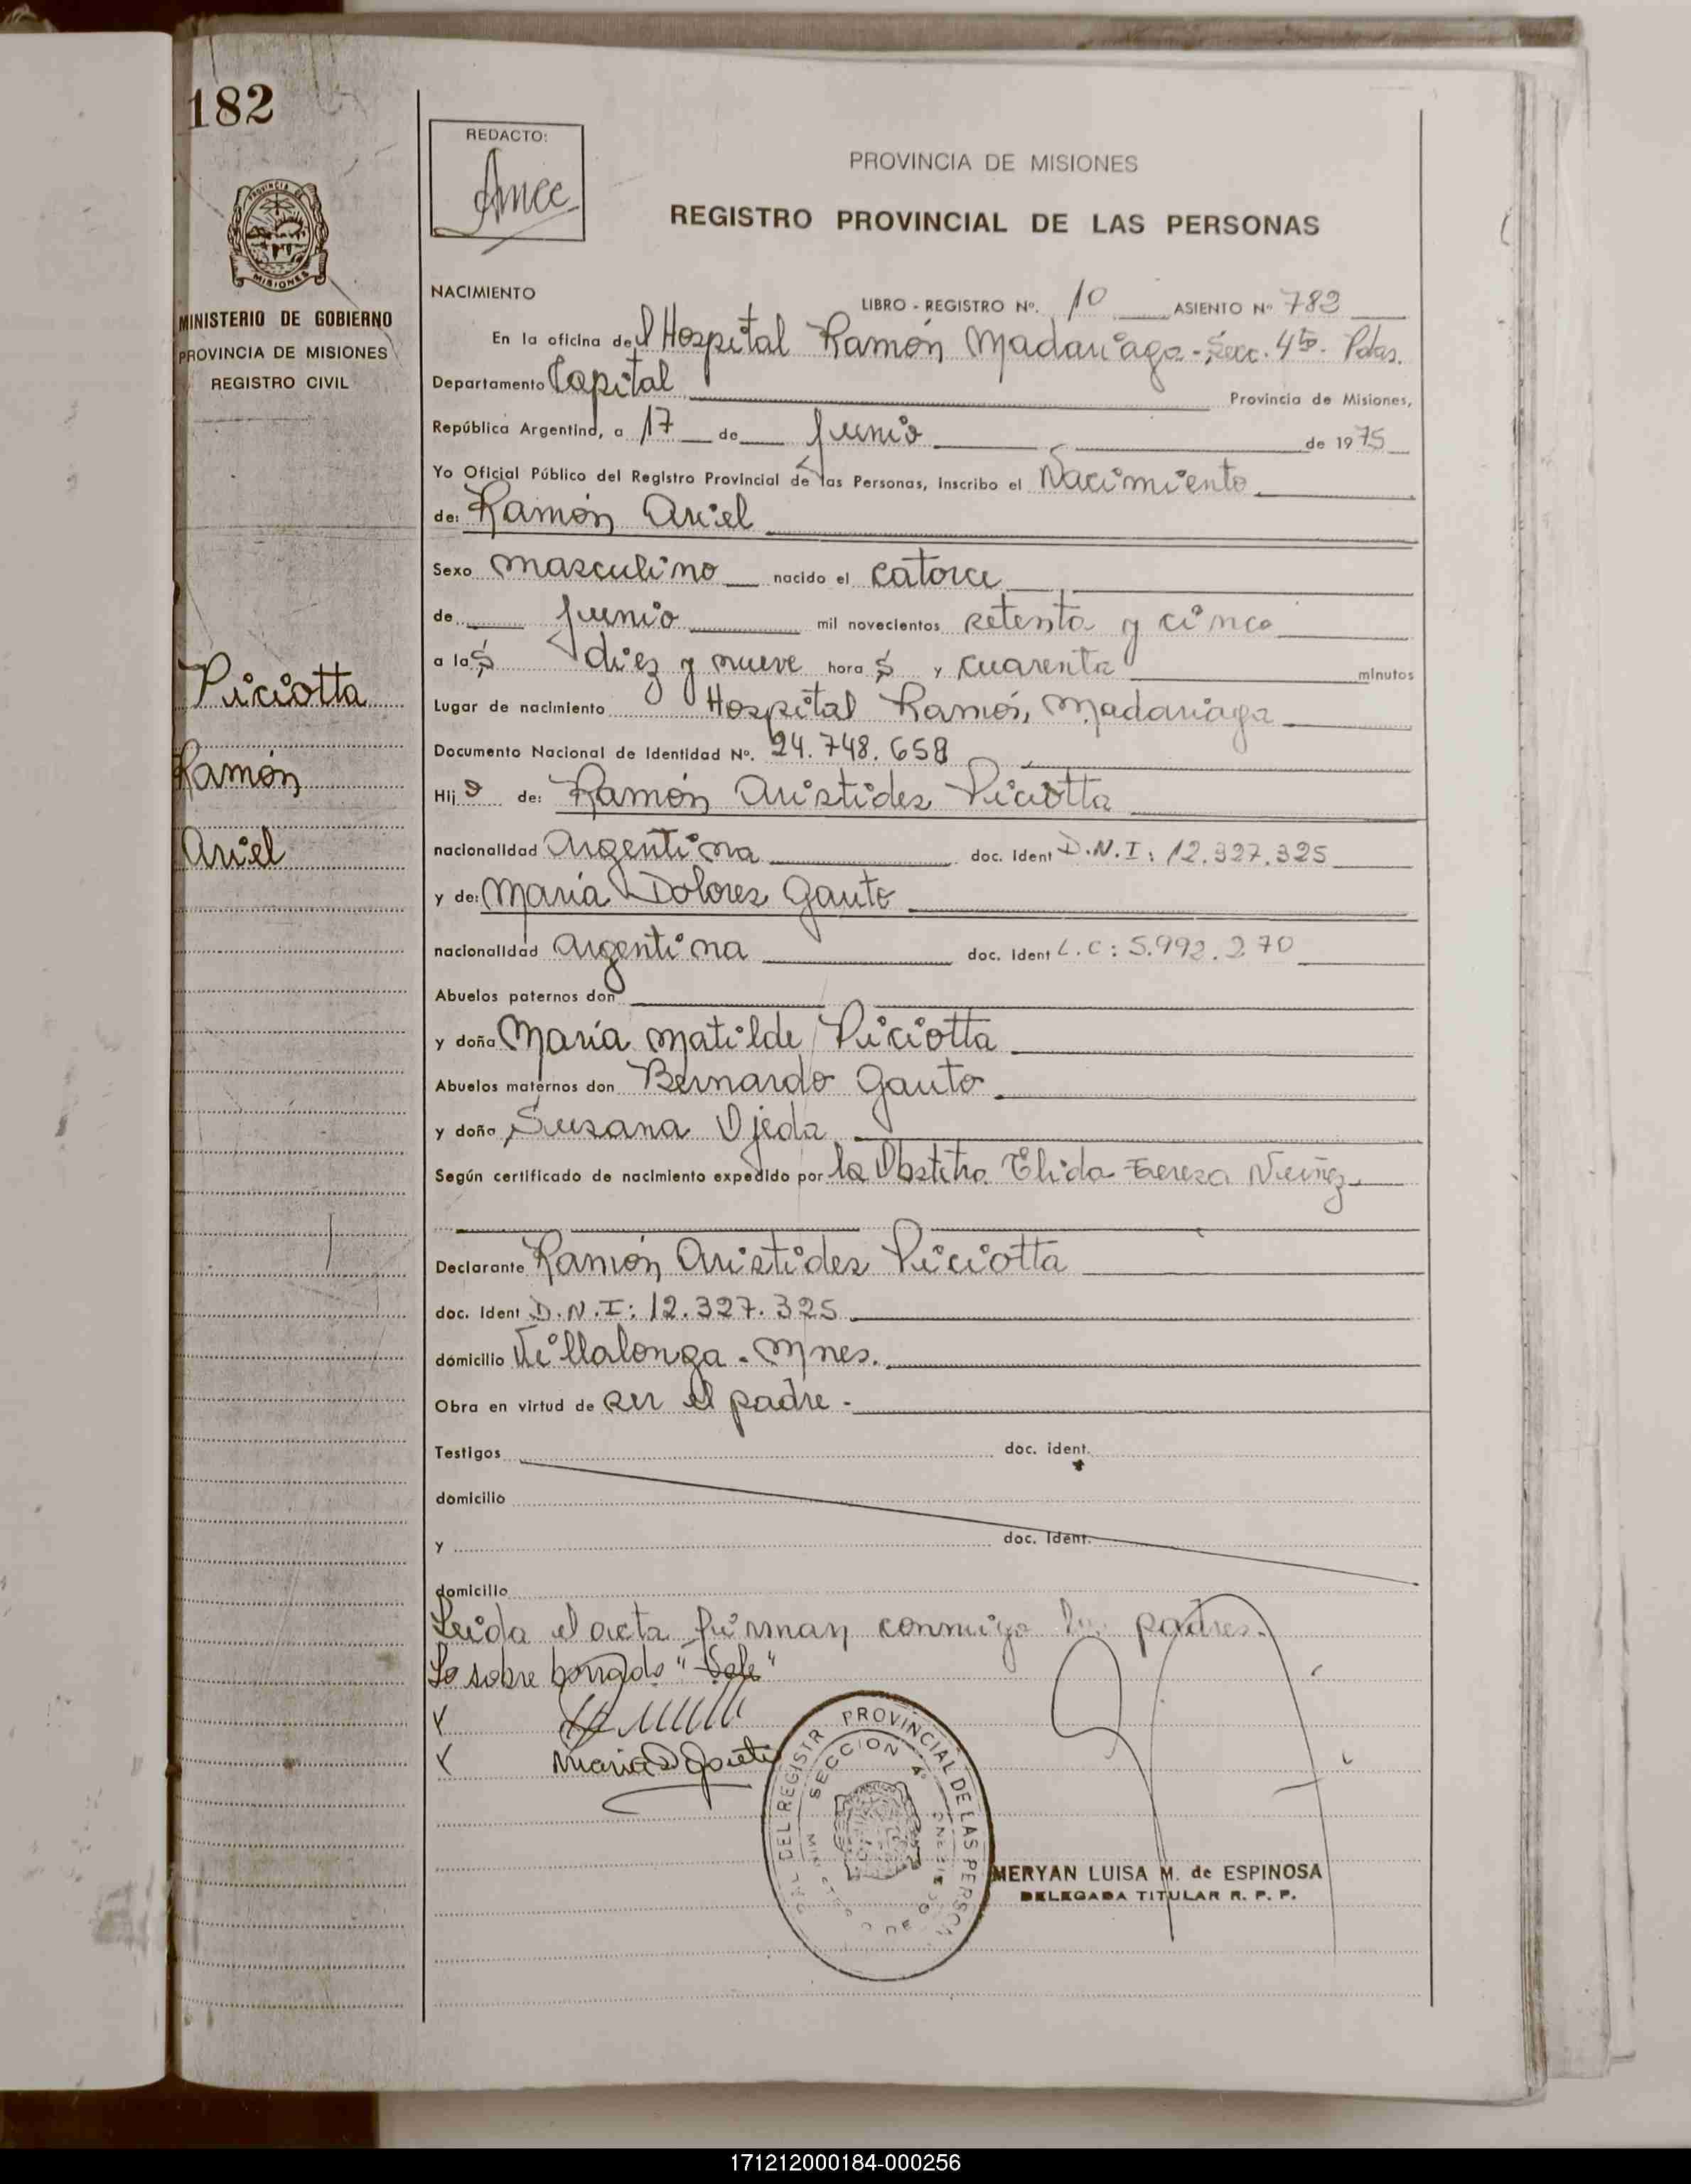 182
REDACTO:
PROVINCIA DE MISIONES
REGISTRO PROVINCIAL DE LAS PERSONAS
PROVINCIA DE
MISIONES
MINISTERIO DE GOBIERNO
PROVINCIA DE MISIONES
REGISTRO CIVIL
Piciotta
Ramón
Ariel
NACIMIENTO
LIBRO - REGISTRO Nº. 10 ASIENTO Nº 782
En la oficina del Hospital Ramón Madariaga - Secc. 4ta. Pdas.
Departamento Capital Provincia de Misiones,
República Argentina, a 17 de Junio de 1975
Yo Oficial Público del Registro Provincial de las Personas, inscribo el Nacimiento
de: Ramón Ariel
Sexo masculino nacido el catorce
de Junio mil novecientos setenta y cinco
a las diez y nueve horas y cuarenta minutos
Lugar de nacimiento Hospital Ramón Madariaga
Documento Nacional de Identidad Nº. 24.748.658
Hijo de: Ramón Aristides Piciotta
nacionalidad Argentina doc. Ident D.N.I: 12.327.325
y de: María Dolores Gauto
nacionalidad argentina doc. Ident L.C: 5.992.270
Abuelos paternos don
y doña María Matilde Piciotta
Abuelos maternos don Bernardo Gauto
y doña Susana Ojeda
Según certificado de nacimiento expedido por la Obstetra Elida Teresa Núñez
Declarante Ramón Aristides Piciotta
doc. Ident D.N.I: 12.327.325
domicilio Villalonga - Mnes.
Obra en virtud de ser el padre -
Testigos doc. ident.
domicilio
y doc. Ident.
domicilio
Leida el acta firman conmigo los padres.
Lo sobre borrado "Vale"
Maria D Gauto
DEL REGISTR PROVINCIAL DE LAS PERSON
SECCION 4ª
MERYAN LUISA M. de ESPINOSA
DELEGADA TITULAR R. P. P.
171212000184-000256